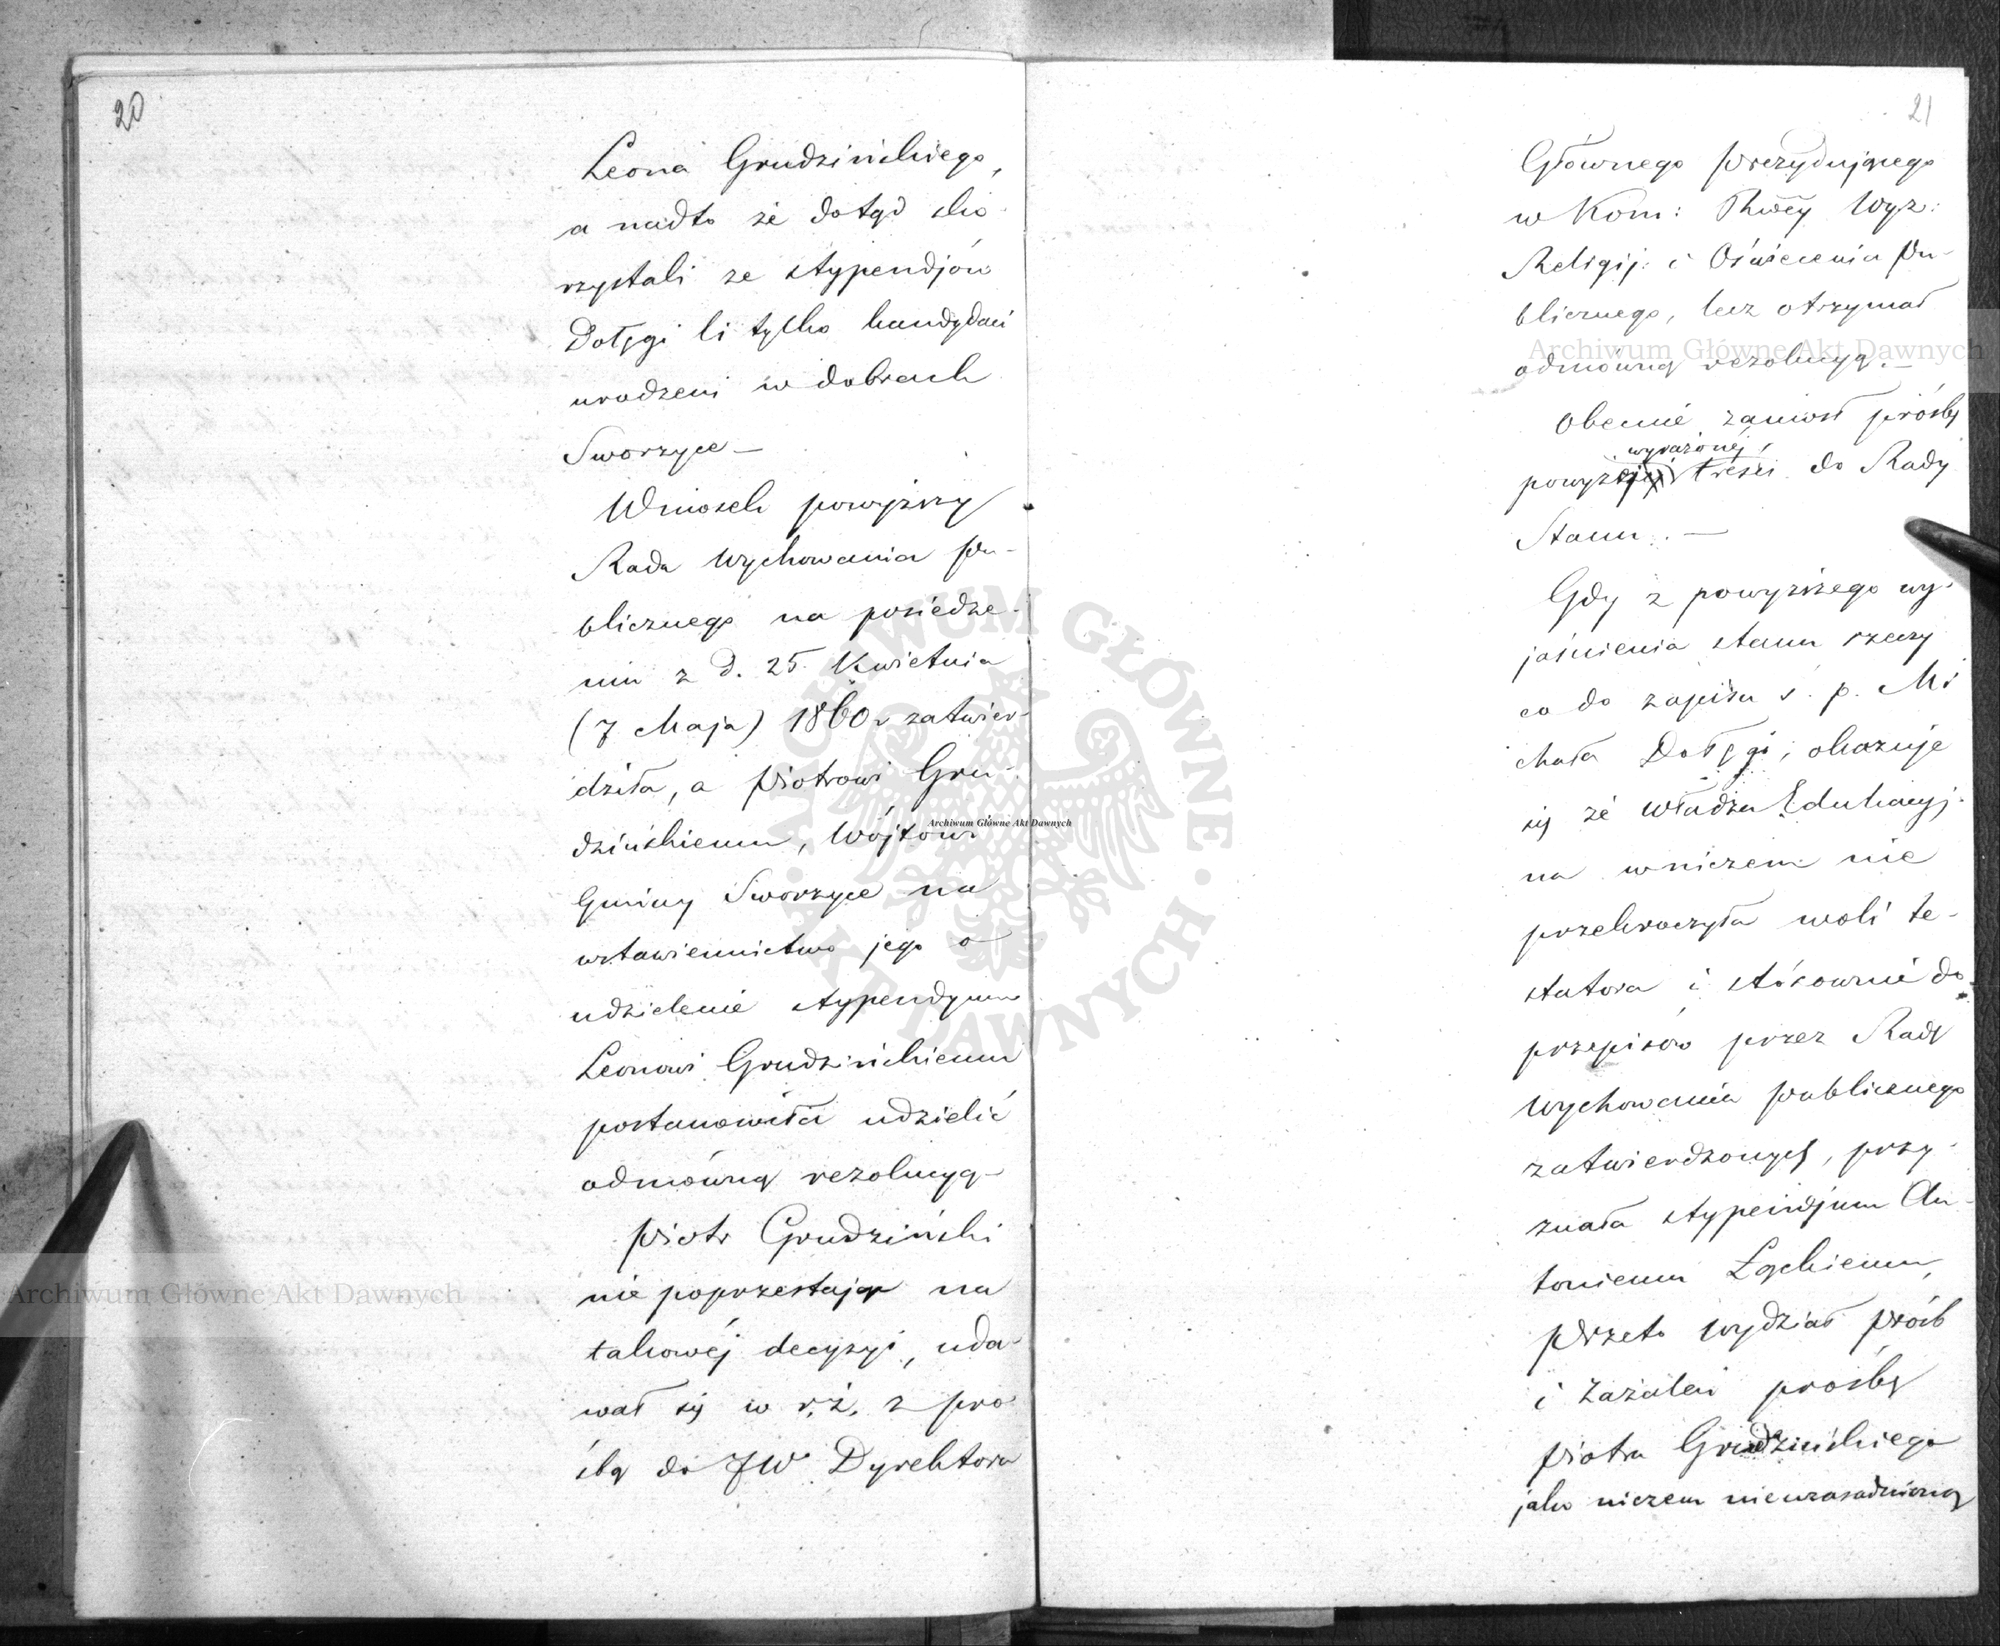 20
Leona Grudzińskiego,
a nadto że dotąd sko-
rzystali ze stypendjów
Dołęgi li tylko kandydaci
urodzeni w dobrach
Sworzyce —
Wniosek powyższy
Rada Wychowania Pu-
blicznego na posiedze-
niu z d. 25. Kwietnia
(7 Maja) 1860 r zatwier-
dziła, a Piotrowi Gru-
dzińskiemu, Wójtowi
Gminy Sworzyce na
wstawiennictwo jego o
udzielenie stypendyum
Leonowi Grudzińskiemu
postanowiła udzielić
odmówną rezolucyą —
Piotr Grudziński
nie poprzestając na
takowéj decyzyi, uda-
wał się w r. ż. z pro-
śbą do JW Dyrektora
21
Głównego Prezydującego
w Kom: Rwéy Wyz:
Religij: i Oświecenia Pu-
blicznego, lecz otrzymał
odmówną rezolucyą. —
Obecnie zaniosł prośbę
wyrażonéj
powyż treści do Rady
Stanu. —
Gdy z powyższego wy-
jaśnienia stanu rzeczy
co do zapisu ś. p. Mi
chała Dołęgi, okazuje
się że Władza Edukacyj-
na wniczem nie
przekroczyła woli te-
statora i stósownie do
przepisów przez Radę
Wychowania Publicznego
zatwierdzonych, przy-
znała stypendjum An-
toniemu Łąckiemu,
Przeto Wydział Próśb
i Zażaleń prośbę
Piotra Grudzińskiego
jako niczem nieuzasadnioną
Archiwum Główne Akt Dawnych
Archiwum Główne Akt Dawnych
Archiwum Główne Akt Dawnych
ARCHIWUM GŁÓWNE · AKT DAWNYCH ·